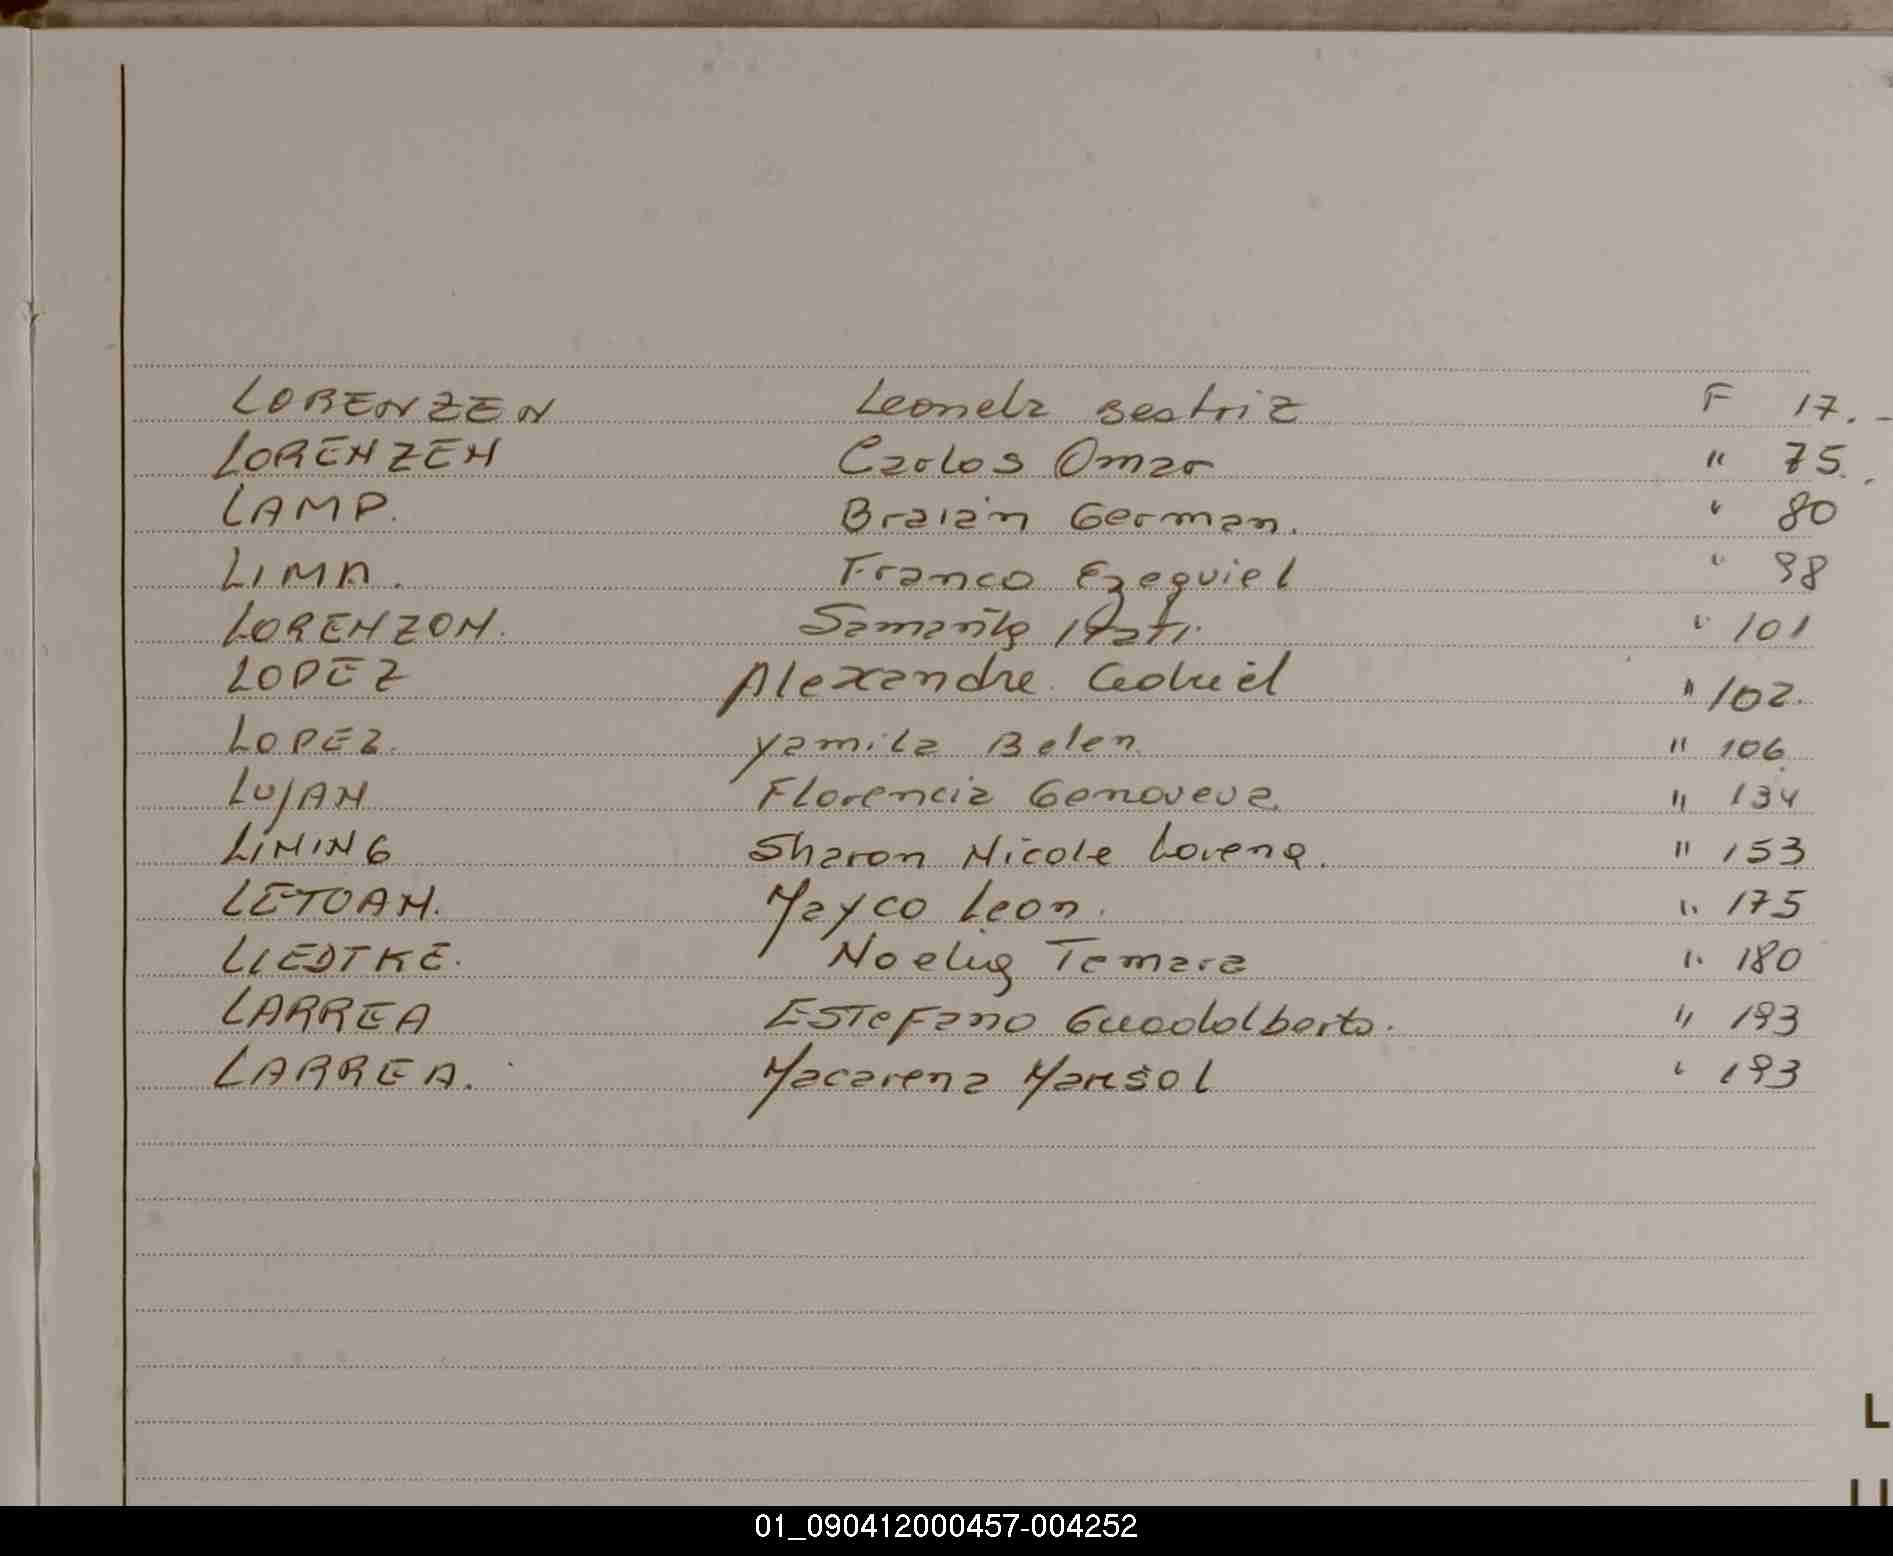 LORENZEN Leonela Beatriz F 17.-
LORENZEN Carlos Omar " 75.
LAMP. Braian German. " 80
LIMA. Franco Ezequiel " 98
LORENZON. Samanta Itati. " 101
LOPEZ Alexandre Gabriel " 102.
LOPEZ. Yamila Belen " 106
LUJAN Florencia Genoveva. " 134
LINING Sharon Nicole Lorena. " 153
LETOAN. Mayco Leon. " 175
LIEDTKE. Noelia Tamara " 180
LARREA ESTEFano Guadalberto. " 193
LARREA. Macarena Marisol " 193
L
LL
01_090412000457-004252